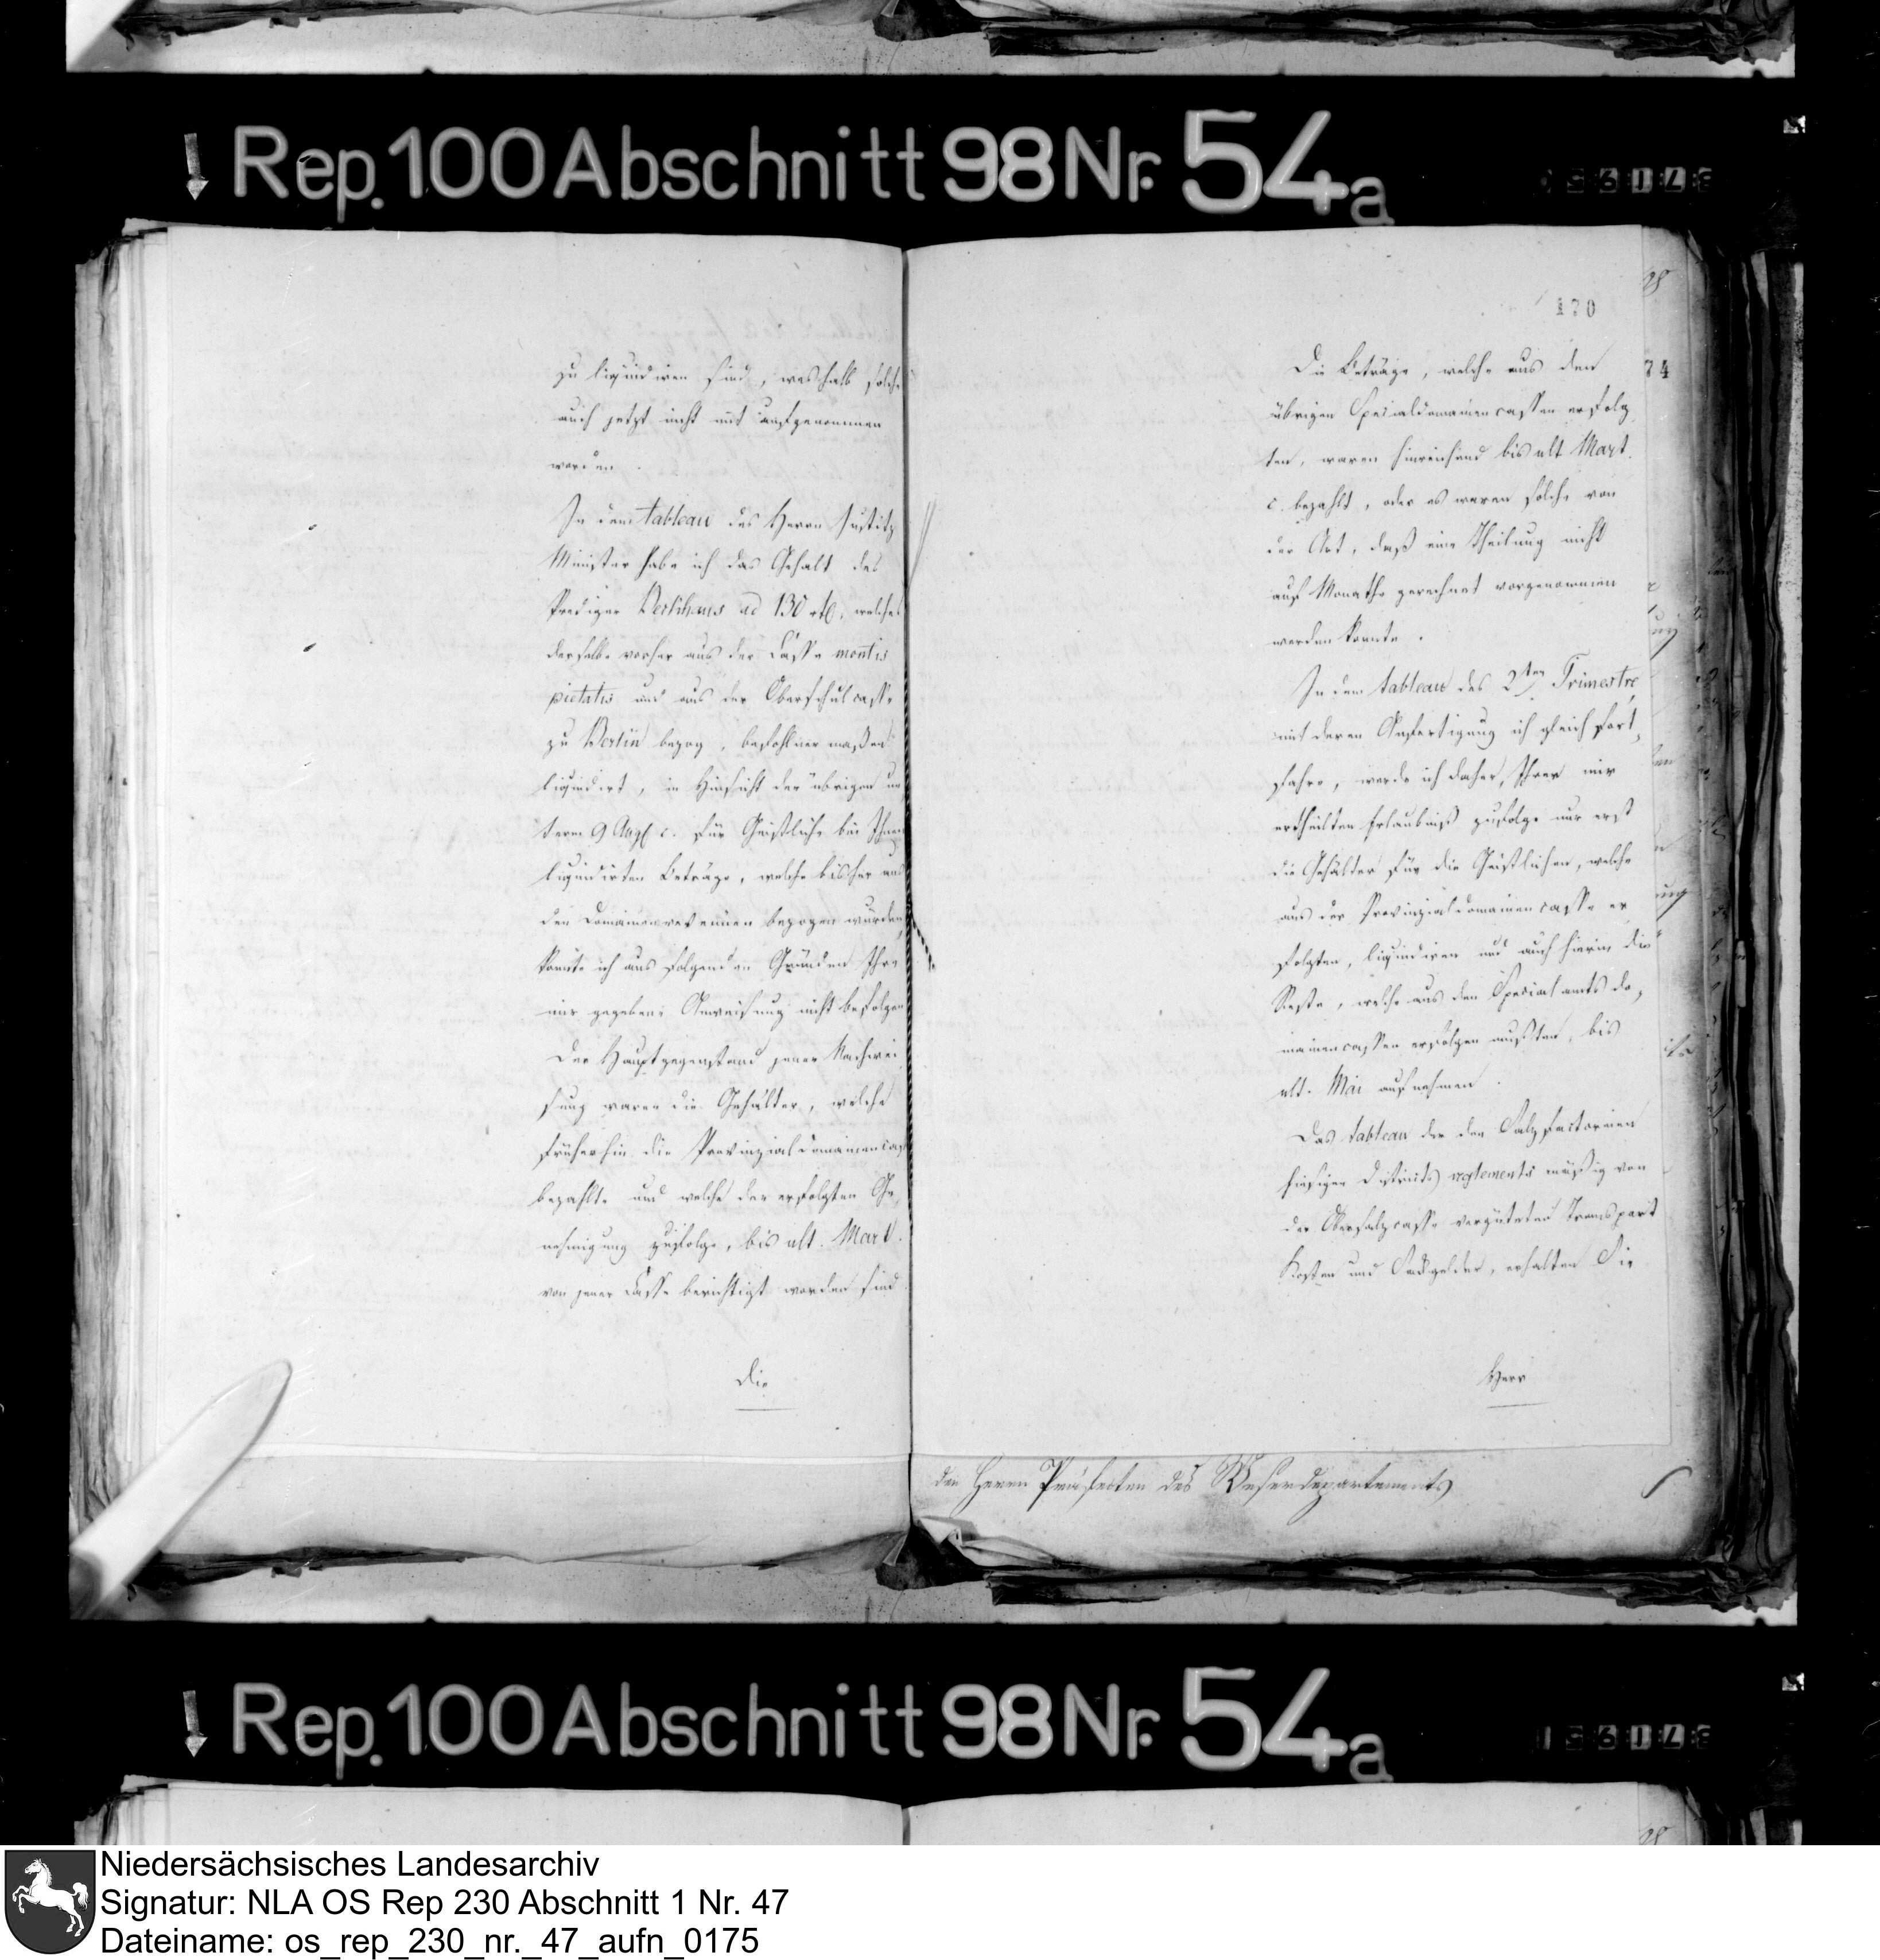 Rep. 100 Abschnitt 98 Nr. 54a
zu liquidiren sind, weshalb solche
auch jetzt nicht mit aufgenommen
worden.
In dem tableau des Herrn Justitz
Minister habe ich das Gehalt des
Prediger ad 130 rtl, welches
derselbe vorher aus der Casse montis
pietatis und aus der Oberschulcasse
zu Berlin bezog, befohlner maßen
liquidirt, in Hinsicht der übrigen un
term 9 Augst c. für Geistliche bei Ihnen
liquidirten Beträge, welche bisher aus
den Domainenreveniien bezogen wurden
konnte ich aus folgenden Gründen Ihre
mir gegebene Anweisung nicht befolgen
Der Hauptgegenstand jener Nachwei
sung waren die Gehälter, welche
früherhin die Provinzialdomainencasse
bezahlte und welche der erfolgten Ge,
nehmigung zufolge, bis ult. Mart.
von jener Casse berichtigt worden sind
Die
170
Die Beträge, welche aus den
übrigen Specialdomainencassen erfolg
ten, waren hinreichend bis ult Mart.
c. bezahlt, oder es waren solche von
der Art, daß eine Theilung nicht
auf Monathe gerechnet vorgenommen
werden konnte.
In dem tableau des 2ten Trimestre,
mit deren Anfertigung ich gleich fort,
fahre, werde ich daher, Ihrer mir
ertheilten Erlaubniß zufolge nur erst
die Gehälter für die Geistlichen, welche
aus der Provinzialdomainencasse er
folgten, liquidiren und auch hierin die
Reste, welche aus den Specialamts do,
mainencassen erfolgen mußten, bis
ult. Mai aufnehmen.
Das tableau der den Salzfactoreien
hiesigen Districts reglements mäßig von
der Obersalzcasse vergüteten Transport
Kosten und Sackgelder, erhalten Sie
Herr
28
74
den Herrn Präfecten des Weserdepartements
Rep. 100 Abschnitt 98 Nr. 54a
28
Niedersächsisches Landesarchiv
Signatur: NLA OS Rep 230 Abschnitt 1 Nr. 47
Dateiname: os_rep_230_nr._47_aufn_0175